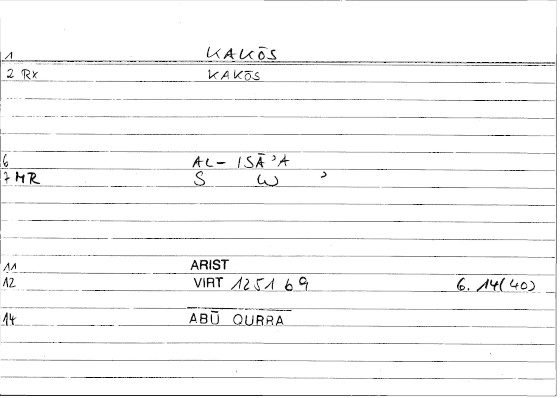 1 KAKŌS
2 RX KAKŌS
6 AL-ISĀʾA
7 MR S W ʾ
11 ARIST
12 VIRT 1251 b 9 6. 14(40)
14 ABŪ QURRA